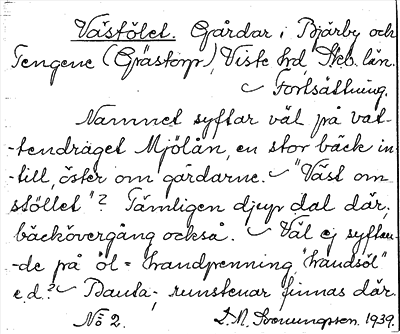 Västölet. Gårdar i Bjärby och
Tengene (Grästorp), Viste hd, Skb. län.
Fortsättning.
Namnet syftar väl på vat-
-tendraget Mjölån, en stor bäck in-
-till, öster om gårdarne. "Väst om
stöllet"? Tämligen djup dal där,
bäckövergång också. Väl ej syftan-
-de på öl = handpenning, "handsöl"
e.d.? Dauta-; runstenar finnas där.
No 2. 1939.